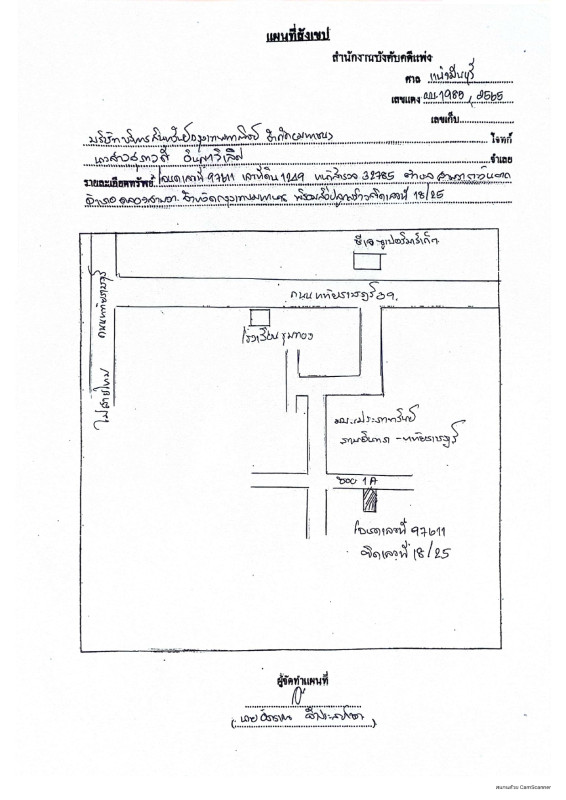 แผนที่สังเขป
สำนักงานบังคับคดีแพ่ง
ศาล แพ่งมีนบุรี
เลขแดง ผบ.1989 / 2565
เลขเก็บ
บริษัทบริหารสินทรัพย์กรุงเทพพาณิชย์ จำกัด(มหาชน) โจทก์
นางสาวสุภาวดี จำเลย
รายละเอียดทรัพย์ โฉนดเลขที่ 97611 เลขที่ดิน 1249 หน้าสำรวจ 32785 ตำบล สามวาตะวันตก
อำเภอ คลองสามวา จังหวัดกรุงเทพมหานคร พร้อมสิ่งปลูกสร้างติดเลขที่ 18/25
ซีเจ ซูเปอร์มาร์เก็ต
ถนนหทัยราษฎร์ 39
ถนนหทัยราษฎร์
โรงเรียน
ไปสายไหม
รามอินทรา - หทัยราษฎร์
ซอย 1A
โฉนดเลขที่ 97611
ติดเลขที่ 18/25
ผู้จัดทำแผนที่
สแกนด้วย CamScanner